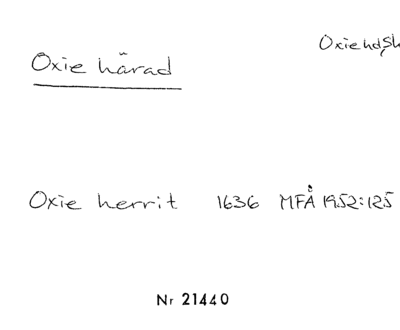 Oxie hd, Sk
Oxie härad
Oxie herrit 1636 MFÅ 1952:125
Nr 21440